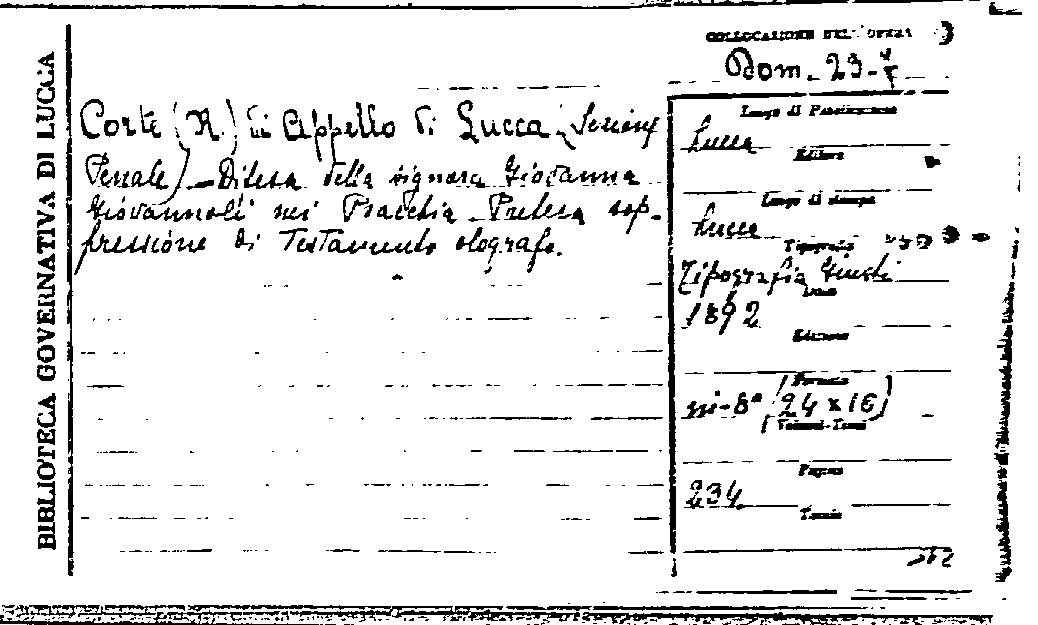 BIBLIOTECA GOVERNATIVA DI LUCCA
COLLOCAZIONE DELL'OPERA
Dom. 23-7
Corte (R.) di Appello di Lucca (Sezione
Penale) - Difesa della signora Giovanna
Giovannoli nei Pracchia - Pretesa sop-
pressione di Testamento olografo.
Luogo di Pubblicazione
Lucca
Editore
Luogo di stampa
Lucca
Tipografia
Tipografia Giusti
Data
1892
Edizione
Formato
in-8° (24 x 16)
Volumi-Tomi
Pagine
234
Tavole